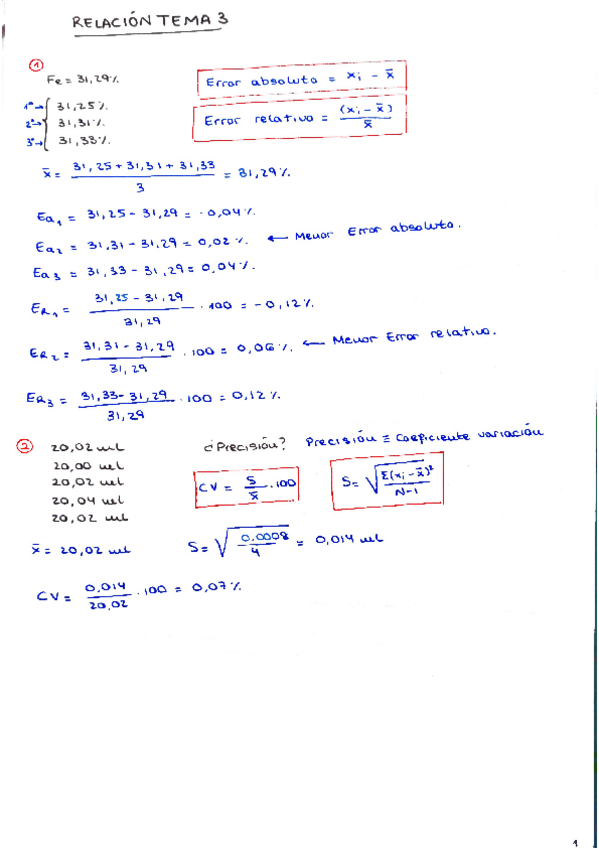 RELACIÓN TEMA 3
1
Fe = 31,29%
Error absoluto = xi - x̄
1º→ 31,25%.
2º→ 31,31%.
3º→ 31,33%.
Error relativo = (xi - x̄) / x̄
x̄ = (31,25 + 31,31 + 31,33) / 3 = 31,29%.
Ea1 = 31,25 - 31,29 = -0,04%.
Ea2 = 31,31 - 31,29 = 0,02%. ← Menor Error absoluto.
Ea3 = 31,33 - 31,29 = 0,04%.
ER1 = (31,25 - 31,29) / 31,29 · 100 = -0,12%.
ER2 = (31,31 - 31,29) / 31,29 · 100 = 0,06%. ← Menor Error relativo.
ER3 = (31,33 - 31,29) / 31,29 · 100 = 0,12%.
2
20,02 ml ¿Precisión? Precisión ≡ Coeficiente variación
20,00 ml
20,02 ml
20,04 ml
20,02 ml
CV = S / x̄ · 100
S = √(Σ(xi - x̄)² / N-1)
x̄ = 20,02 ml
S = √(0,0008 / 4) = 0,014 ml
CV = 0,014 / 20,02 · 100 = 0,07%
1